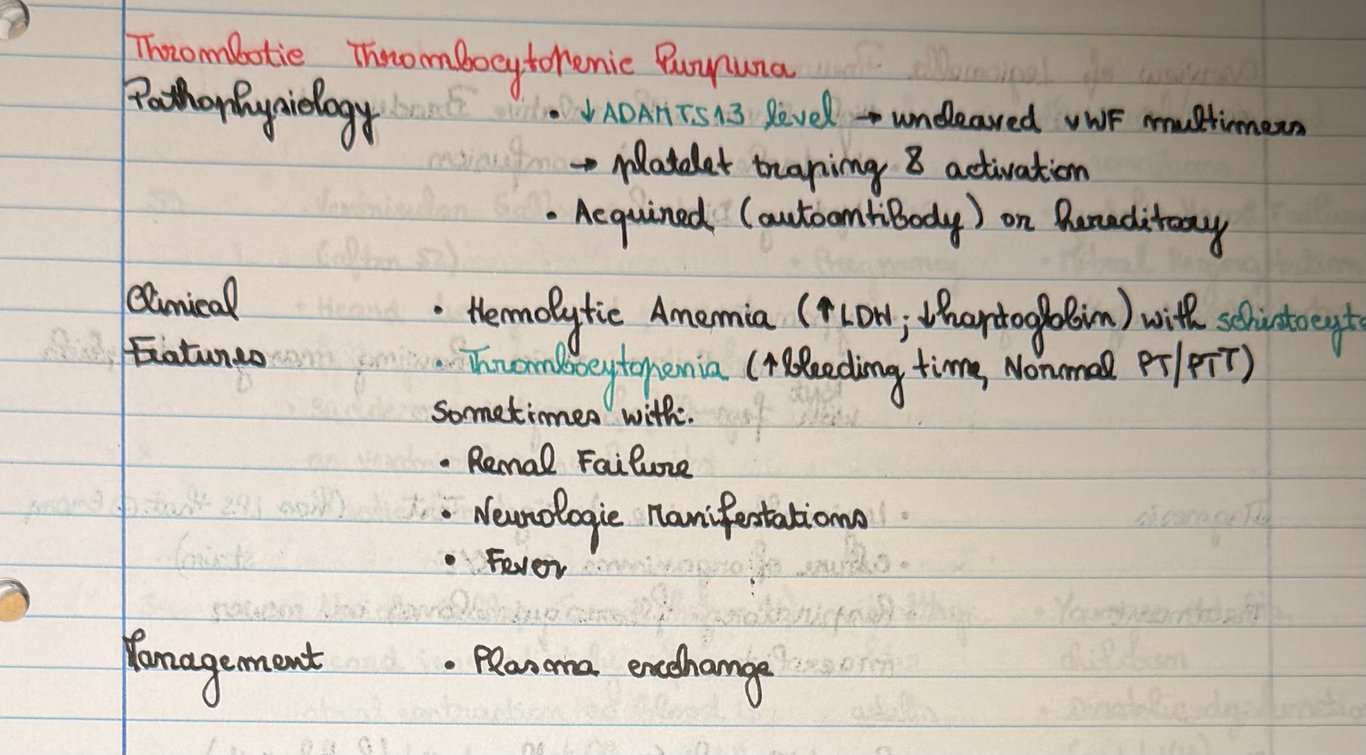 Thrombotic Thrombocytopenic Purpura
Pathophysiology • ↓ ADAMTS13 level → uncleaved vWF multimers
→ platelet traping & activation
• Acquired (autoantibody) or hereditary
Clinical • Hemolytic Anemia (↑LDH; ↓haptoglobin) with schistocyt
Features • Thrombocytopenia (↑bleeding time, Normal PT/PTT)
sometimes with:
• Renal Failure
• Neurologic Manifestations
• Fever
Management • Plasma exchange